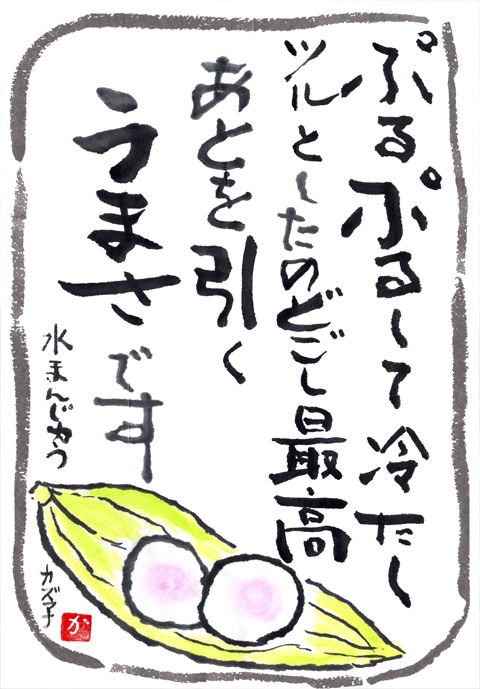 ぷるぷるして冷たし
ツルとしたのどごし最高
あとを引く
うまさです
水まんじゅう
カズ子
か